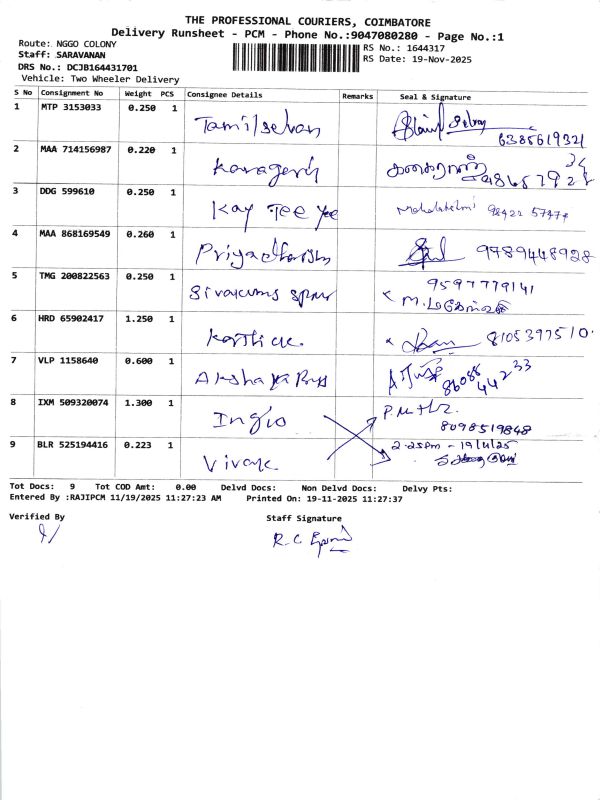 THE PROFESSIONAL COURIERS, COIMBATORE
Delivery Runsheet - PCM - Phone No.:9047080280 - Page No.:1
Route: NGGO COLONY
Staff: SARAVANAN
DRS No.: DCJB164431701
Vehicle: Two Wheeler Delivery
RS No.: 1644317
RS Date: 19-Nov-2025
S No Consignment No Weight PCS Consignee Details Remarks Seal & Signature
1 MTP 3153033 0.250 1 Tamilselvan 6385619321
2 MAA 714156987 0.220 1
3 DDG 599610 0.250 1 Kay Tee Yee Mahalakshmi
4 MAA 868169549 0.260 1 Priyadharshini 9789448928
5 TMG 200822563 0.250 1 9597779141
6 HRD 65902417 1.250 1 Karthick. 8105397510.
7 VLP 1158640 0.600 1 86088 44233
8 IXM 509320074 1.300 1 8098519848
9 BLR 525194416 0.223 1 Vivek 2.25pm - 19/11/25
Tot Docs: 9 Tot COD Amt: 0.00 Delvd Docs: Non Delvd Docs: Delvy Pts:
Entered By :RAJIPCM 11/19/2025 11:27:23 AM Printed On: 19-11-2025 11:27:37
Verified By Staff Signature